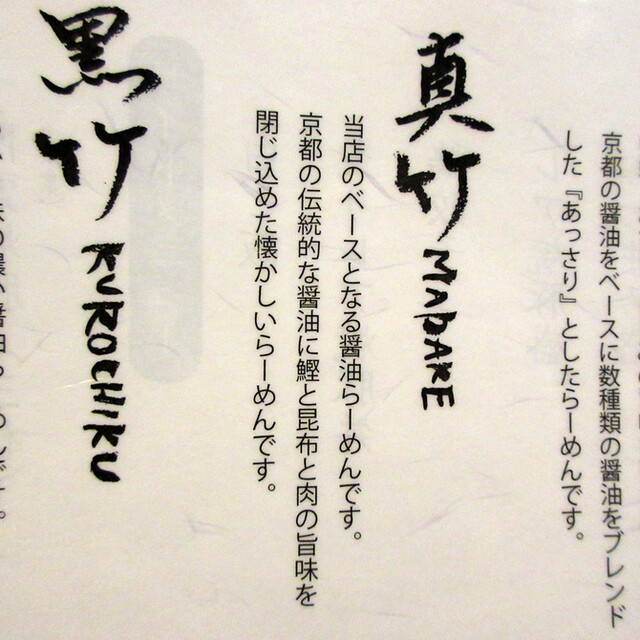 京都の醤油をベースに数種類の醤油をブレンド
した『あっさり』としたらーめんです。
真竹 MADAKE
当店のベースとなる醤油らーめんです。
京都の伝統的な醤油に鰹と昆布と肉の旨味を
閉じ込めた懐かしいらーめんです。
黒竹 KUROCHIKU